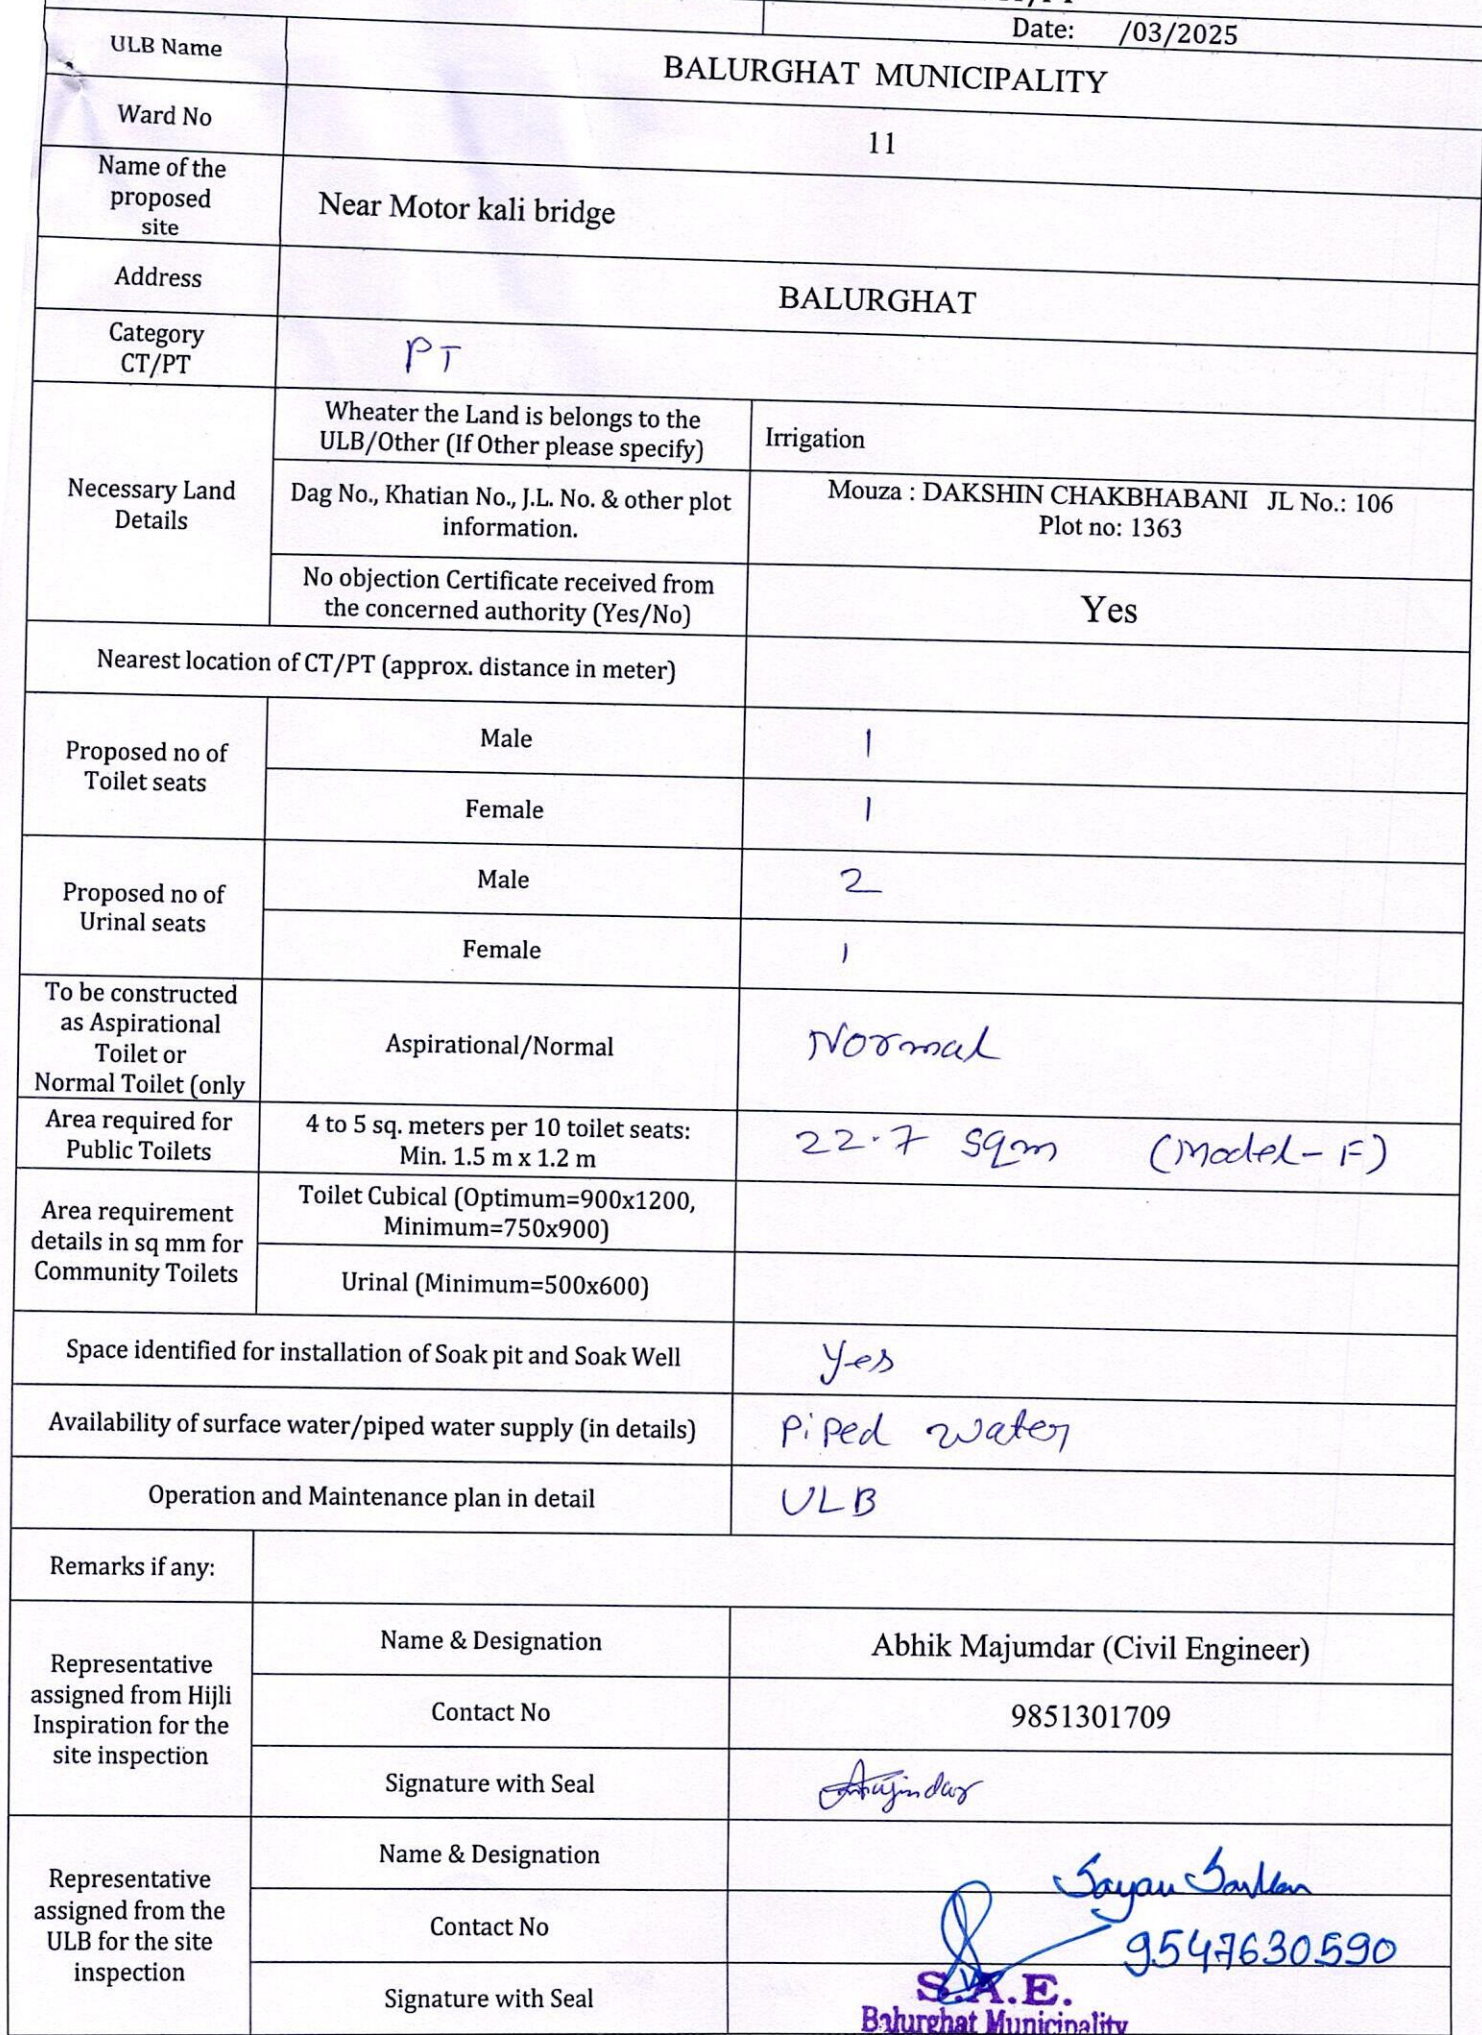 Date: /03/2025
ULB Name
BALURGHAT MUNICIPALITY
Ward No
11
Name of the
proposed
site
Near Motor kali bridge
Address
BALURGHAT
Category
CT/PT
PT
Necessary Land
Details
Wheater the Land is belongs to the
ULB/Other (If Other please specify)
Irrigation
Dag No., Khatian No., J.L. No. & other plot
information.
Mouza : DAKSHIN CHAKBHABANI JL No.: 106
Plot no: 1363
No objection Certificate received from
the concerned authority (Yes/No)
Yes
Nearest location of CT/PT (approx. distance in meter)
Proposed no of
Toilet seats
Male
1
Female
1
Proposed no of
Urinal seats
Male
2
Female
1
To be constructed
as Aspirational
Toilet or
Normal Toilet (only
Aspirational/Normal
Normal
Area required for
Public Toilets
4 to 5 sq. meters per 10 toilet seats:
Min. 1.5 m x 1.2 m
22.7 sqm (Model-F)
Area requirement
details in sq mm for
Community Toilets
Toilet Cubical (Optimum=900x1200,
Minimum=750x900)
Urinal (Minimum=500x600)
Space identified for installation of Soak pit and Soak Well
Yes
Availability of surface water/piped water supply (in details)
Piped water
Operation and Maintenance plan in detail
ULB
Remarks if any:
Representative
assigned from Hijli
Inspiration for the
site inspection
Name & Designation
Abhik Majumdar (Civil Engineer)
Contact No
9851301709
Signature with Seal
Representative
assigned from the
ULB for the site
inspection
Name & Designation
Sayan Sarkar
Contact No
9547630590
Signature with Seal
S.A.E.
Balurghat Municipality